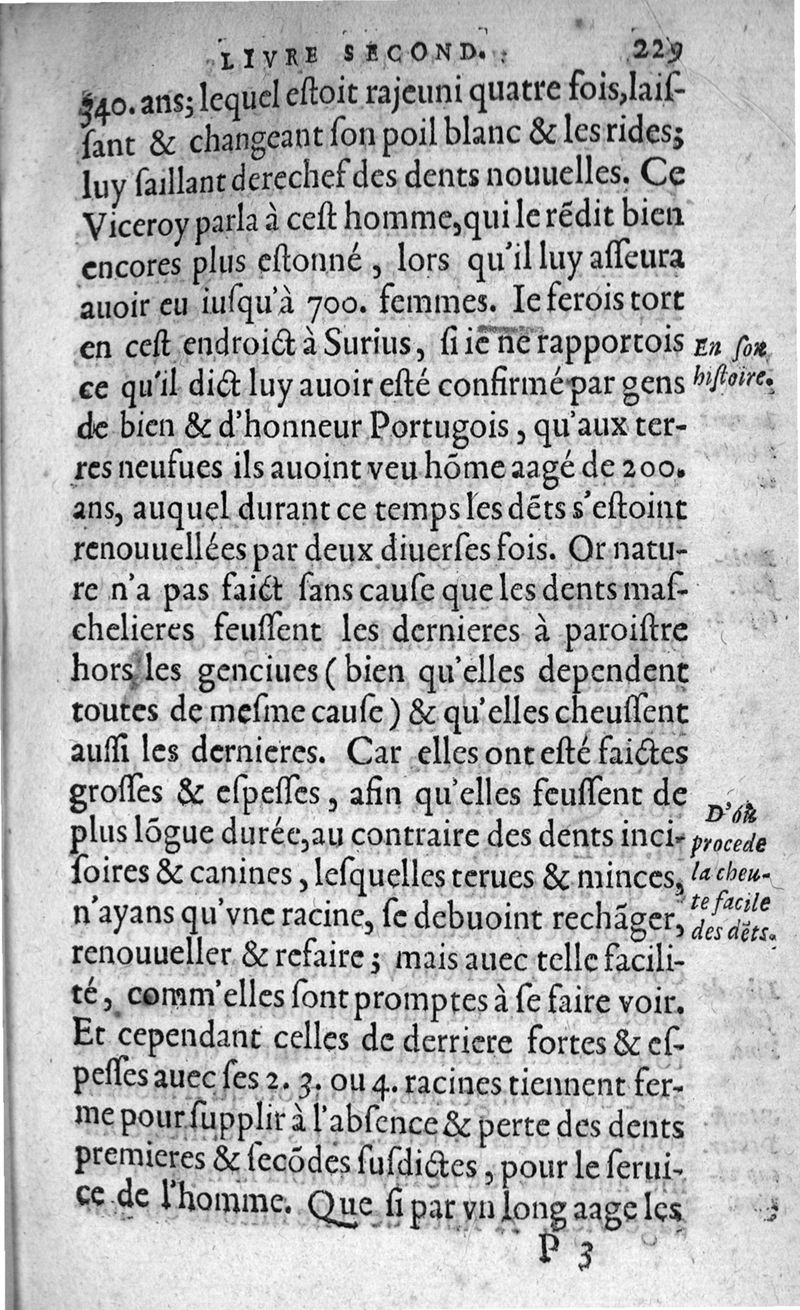 LIVRE SECOND. 229
340. ans; lequel eſtoit rajeuni quatre fois, laiſ-
ſant & changeant ſon poil blanc & les rides;
luy ſaillant derechef des dents nouuelles. Ce
Viceroy parla à ceſt homme, qui le rēdit bien
encores plus eſtonné, lors qu'il luy aſſeura
auoir eu iuſqu'à 700. femmes. Ie ferois tort
en ceſt endroict à Surius, ſi ie ne rapportois
En ſon
ce qu'il dict luy auoir eſté confirmé par gens
hiſtoire.
de bien & d'honneur Portugois, qu'aux ter-
res neufues ils auoint veu hōme aagé de 200.
ans, auquel durant ce temps les dēts s'eſtoint
renouuellées par deux diuerſes fois. Or natu-
re n'a pas faict ſans cauſe que les dents maſ-
chelieres feuſſent les dernieres à paroiſtre
hors les genciues (bien qu'elles dependent
toutes de meſme cauſe) & qu'elles cheuſſent
auſſi les dernieres. Car elles ont eſté faictes
groſſes & eſpeſſes, afin qu'elles feuſſent de
D'où
plus lōgue durée, au contraire des dents inci-
procede
ſoires & canines, leſquelles terues & minces,
la cheu-
n'ayans qu'vne racine, ſe debuoint rechāger,
te facile
des dēts.
renouueller & refaire; mais auec telle facili-
té, comm'elles ſont promptes à ſe faire voir.
Et cependant celles de derriere fortes & eſ-
peſſes auec ſes 2. 3. ou 4. racines tiennent fer-
me pour ſupplir à l'abſence & perte des dents
premieres & ſecōdes ſuſdictes, pour le ſerui-
ce de l'homme. Que ſi par vn long aage les
P 3